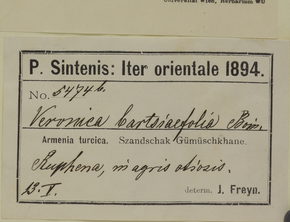 Universität Wien, Herbarium WU
P. Sintenis: Iter orientale 1894.
No. 5474b.
Veronica bartsiaefolia Boiss.
Armenia turcica. Szandschak Gümüschkhane.
in agris otiosis.
13. V. determ. J. Freyn.